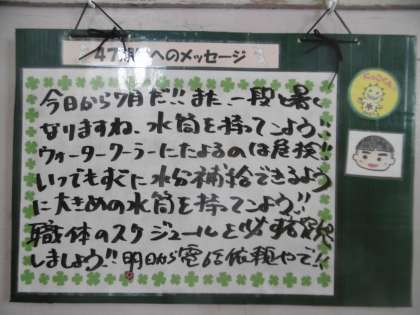 47期生へのメッセージ
今日から7月だ!!また一段と暑く
なりますね、水筒を持ってこよう、
ウォータークーラーにたよるのは危険!!
いつでもすぐに水分補給できるよう
に大きめの水筒を持ってこよう!!
職体のスケジュールを必ず確認
しましょう!!明日から電話依頼やで!!